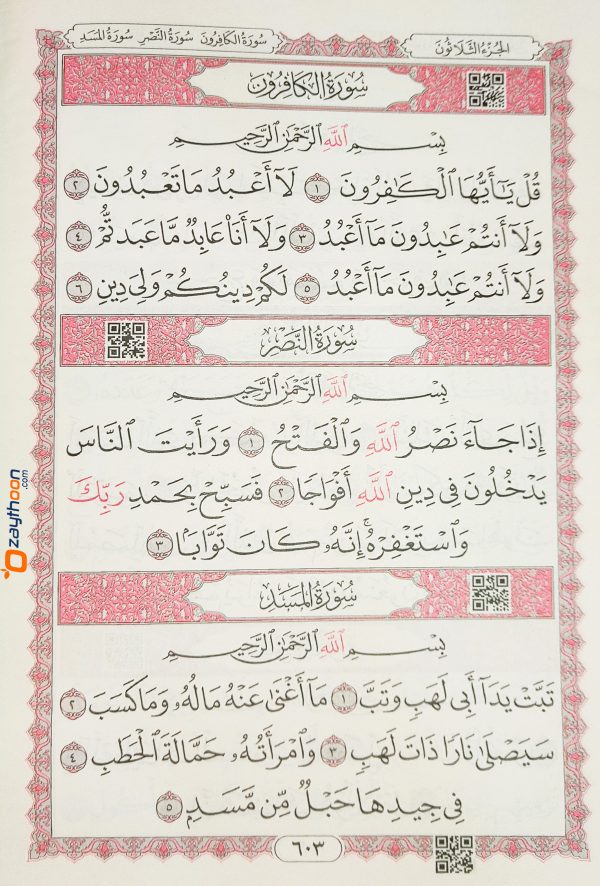 الجزء الثلاثون
سورة الكافرون سورة النصر سورة المسد
سُورَةُ الكَافِرُونَ
بِسْمِ ٱللَّهِ ٱلرَّحْمَٰنِ ٱلرَّحِيمِ
قُلْ يَٰٓأَيُّهَا ٱلْكَٰفِرُونَ ١ لَآ أَعْبُدُ مَا تَعْبُدُونَ ٢
وَلَآ أَنتُمْ عَٰبِدُونَ مَآ أَعْبُدُ ٣ وَلَآ أَنَا۠ عَابِدٌ مَّا عَبَدتُّمْ ٤
وَلَآ أَنتُمْ عَٰبِدُونَ مَآ أَعْبُدُ ٥ لَكُمْ دِينُكُمْ وَلِىَ دِينِ ٦
سُورَةُ النَّصْرِ
بِسْمِ ٱللَّهِ ٱلرَّحْمَٰنِ ٱلرَّحِيمِ
إِذَا جَآءَ نَصْرُ ٱللَّهِ وَٱلْفَتْحُ ١ وَرَأَيْتَ ٱلنَّاسَ
يَدْخُلُونَ فِى دِينِ ٱللَّهِ أَفْوَاجًا ٢ فَسَبِّحْ بِحَمْدِ رَبِّكَ
وَٱسْتَغْفِرْهُ ۚ إِنَّهُۥ كَانَ تَوَّابًۢا ٣
سُورَةُ المَسَدِ
بِسْمِ ٱللَّهِ ٱلرَّحْمَٰنِ ٱلرَّحِيمِ
تَبَّتْ يَدَآ أَبِى لَهَبٍ وَتَبَّ ١ مَآ أَغْنَىٰ عَنْهُ مَالُهُۥ وَمَا كَسَبَ ٢
سَيَصْلَىٰ نَارًا ذَاتَ لَهَبٍ ٣ وَٱمْرَأَتُهُۥ حَمَّالَةَ ٱلْحَطَبِ ٤
فِى جِيدِهَا حَبْلٌ مِّن مَّسَدٍۭ ٥
٦٠٣
zaythoon.com